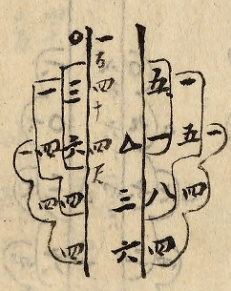 一
一五四
五一八四
△三六
一百四十四尺
〇三六四四
一四四
一